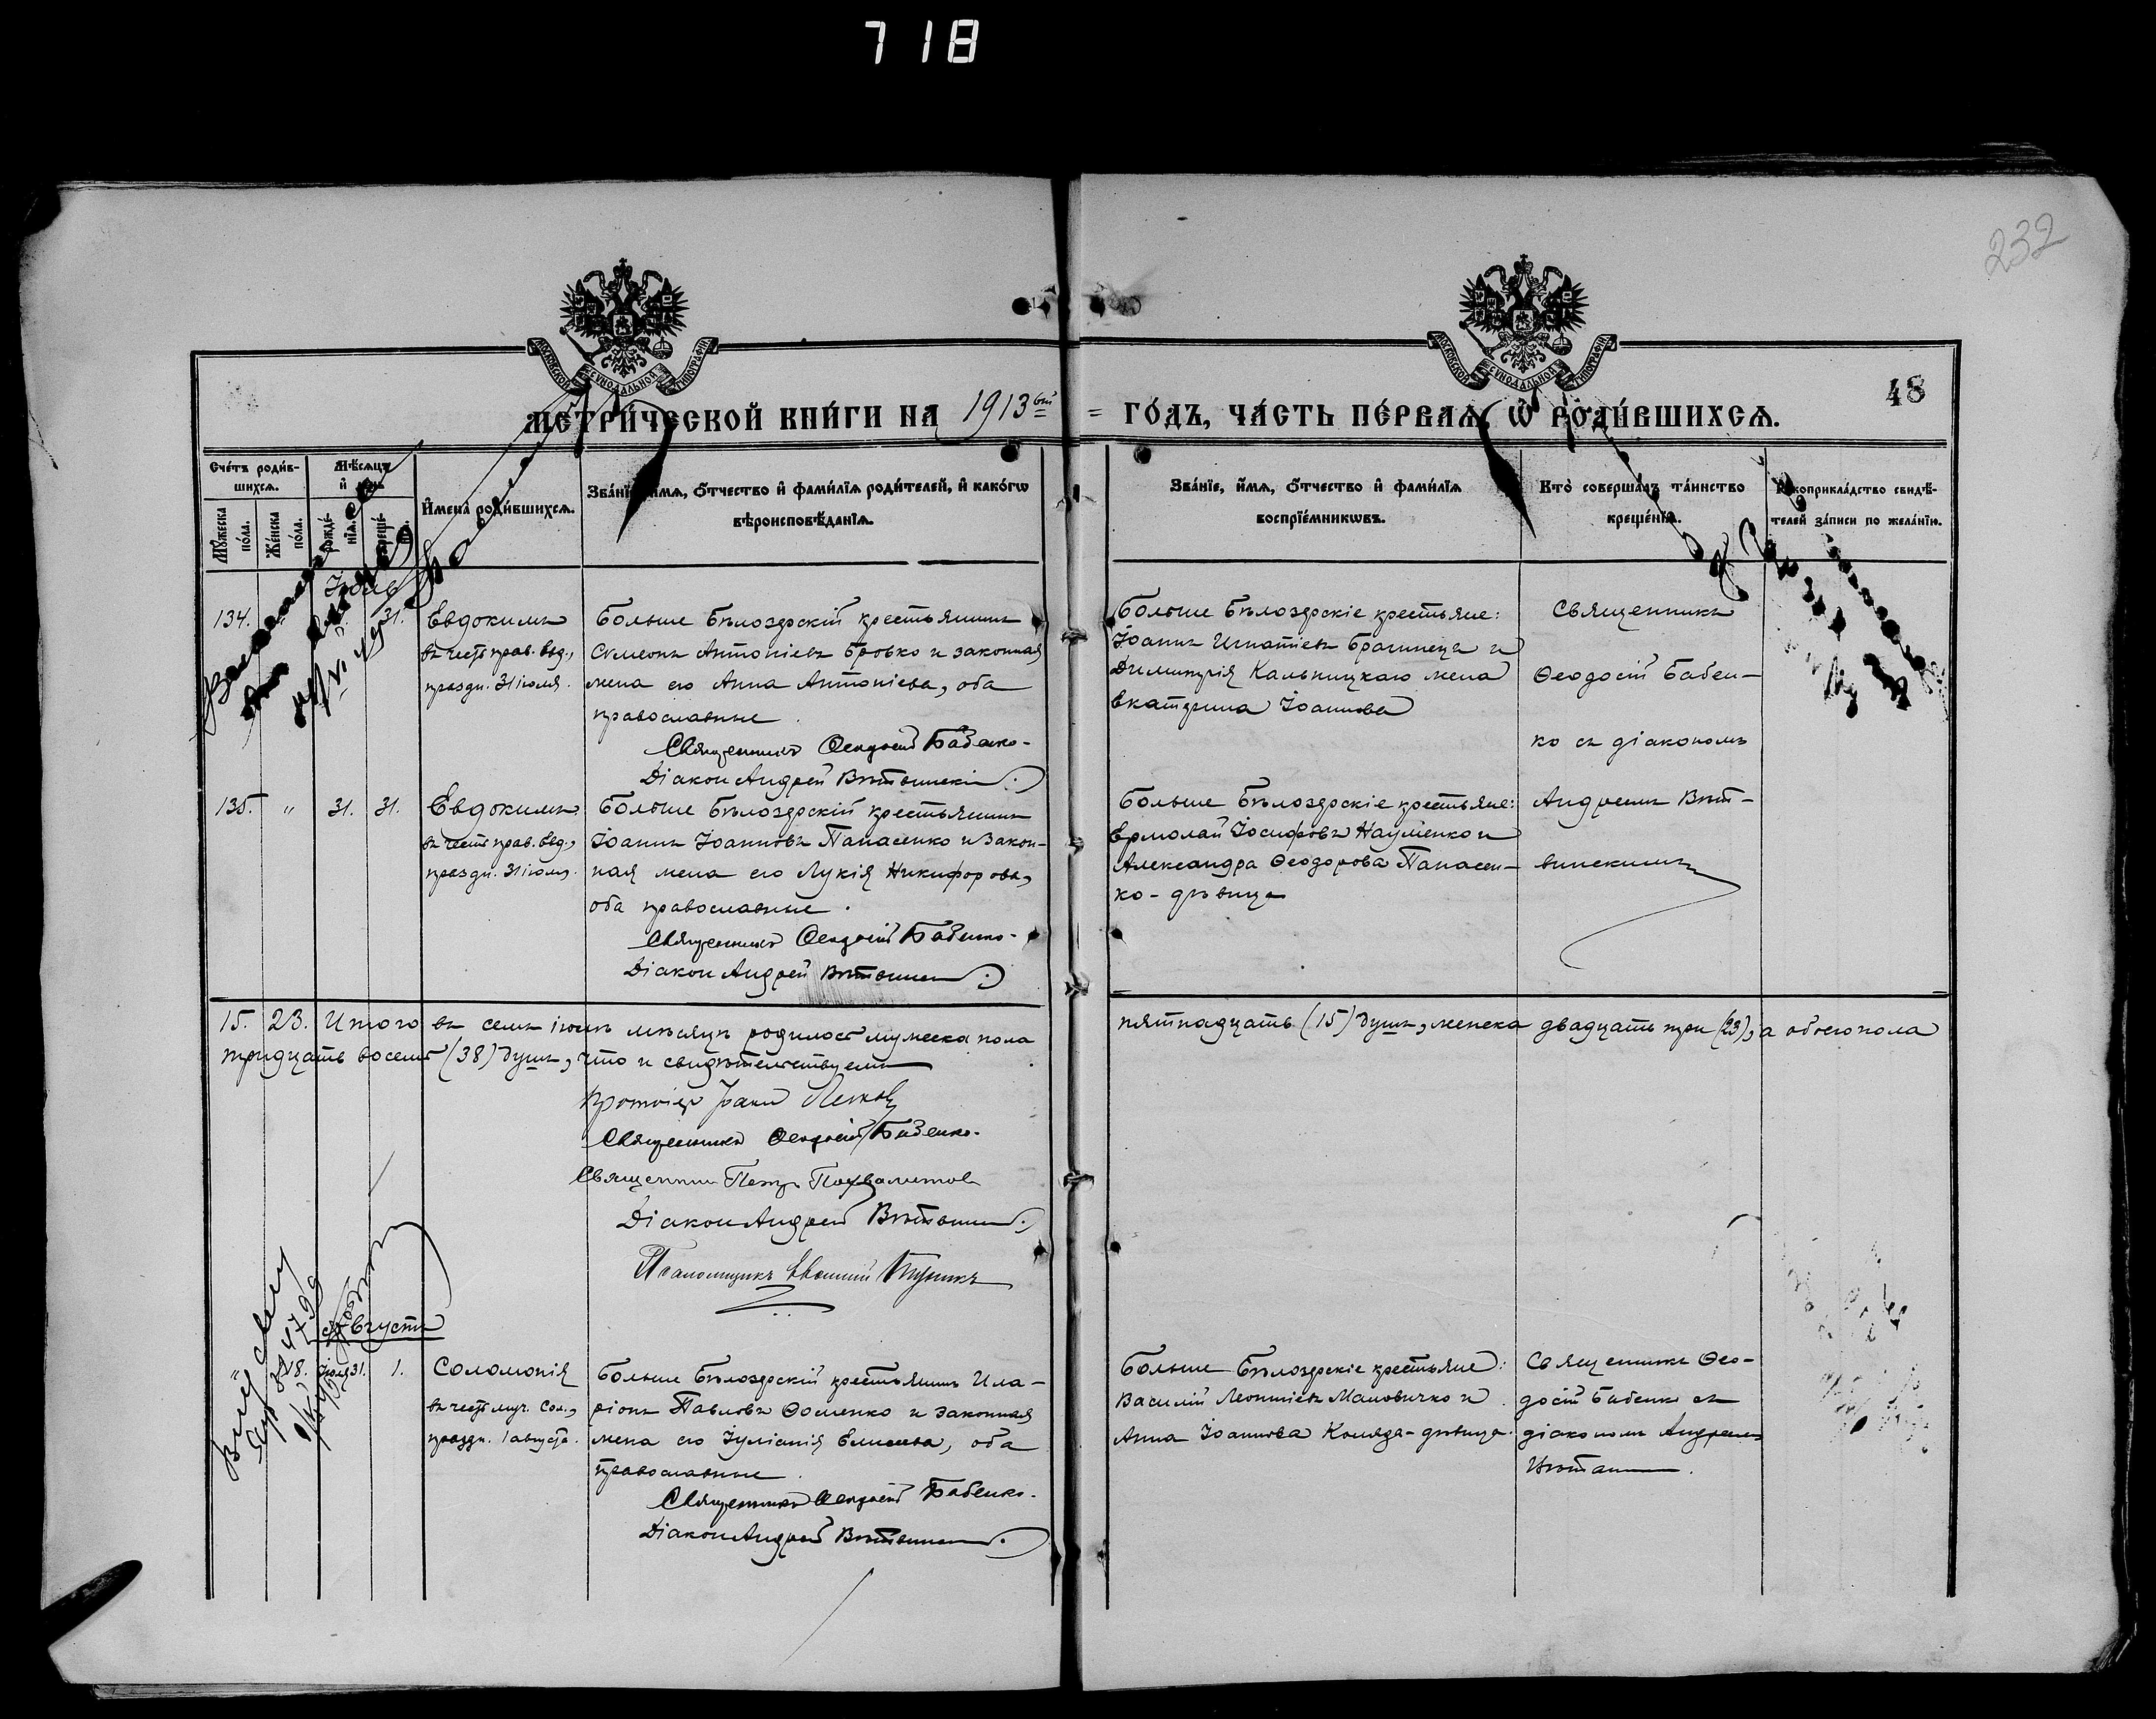 718
232
48
МОСКОВСКОЙ СУНОДАЛЬНОЙ ТИПОГРАФІИ
МОСКОВСКОЙ СУНОДАЛЬНОЙ ТИПОГРАФІИ
МЕТРИ́ЧЕСКОЙ КНИ́ГИ НА 1913 ый = ГО́ДЪ, ЧА́СТЬ ПЕ́РВАѦ, Ѡ РОДИ́ВШИХСѦ.
Сче́тъ роди́вшихсѧ.
Мꙋ́жеска по́ла.
Же́нска по́ла.
Мѣ́сѧцъ и҆ день
рожде́нїѧ.
креще́нїѧ.
И҆мена̀ роди́вшихсѧ.
Зва́нїе, и҆́мѧ, ѻ҆́тчество и҆ фами́лїѧ роди́телей, и҆ како́гѡ
вѣроисповѣ́данїѧ.
Зва́нїе, и҆́мѧ, ѻ҆́тчество и҆ фами́лїѧ
воспрїе́мникѡвъ.
Кто̀ соверша́лъ та́инство
креще́нїѧ.
Рꙋкоприкла́дство свидѣ́-
телей за́писи по жела́нїю.
Іюль
134. 31.
Евдокимъ
въ честь прав. Евд.,
праздн. 31 іюля.
Больше Бѣлозерскій крестьянинъ
Сѵмеонъ Антоніевъ Бровко и законная
жена его Анна Антоніева, оба
православные.
Священникъ Ѳеодосій Бабенко.
Діаконъ Андрей
Больше Бѣлозерскіе крестьяне:
Іоаннъ Игнатіевъ Брагинецъ и
Димитрія Кальницкаго жена
Екатерина Іоаннова
Священникъ
Ѳеодосій Бабен-
ко съ діакономъ
135. " 31. 31.
Евдокимъ
въ честь прав. Евд.,
праздн. 31 іюля.
Больше Бѣлозерскій крестьянинъ
Іоаннъ Іоанновъ Панасенко и закон-
ная жена его Лукія Никифорова,
оба православные.
Священникъ Ѳеодосій Бабенко.
Діаконъ Андрей
Больше Бѣлозерскіе крестьяне:
Ермолай Іосифовъ Науменко и
Александра Ѳеодорова Панасен-
ко - дѣвица
Андреемъ Вѣт-
винскимъ
15. 23. Итого въ семъ іюлѣ мѣсяцѣ родилось мужеска пола пятнадцать (15) душъ, женска двадцать три (23), а обоего пола
тридцать восемь (38) душъ, что и свидѣтельствуемъ
Протоіерей Іоаннъ
Священникъ Ѳеодосій Бабенко.
Священникъ Петръ
Діаконъ Андрей
Псаломщикъ
Августъ
" 128. Іюля 31. 1.
Соломонія
въ честь муч. Сол.,
праздн. 1 августа.
Больше Бѣлозерскій крестьянинъ Ила-
ріонъ Павловъ Ѳоменко и законная
жена его Іуліанія Елисеева, оба
православные.
Священникъ Ѳеодосій Бабенко.
Діаконъ Андрей
Больше Бѣлозерскіе крестьяне:
Василій Леонтіевъ Маловичко и
Анна Іоаннова Коляда - дѣвица.
Священникъ Ѳео-
досій Бабенко съ
діакономъ Андреемъ